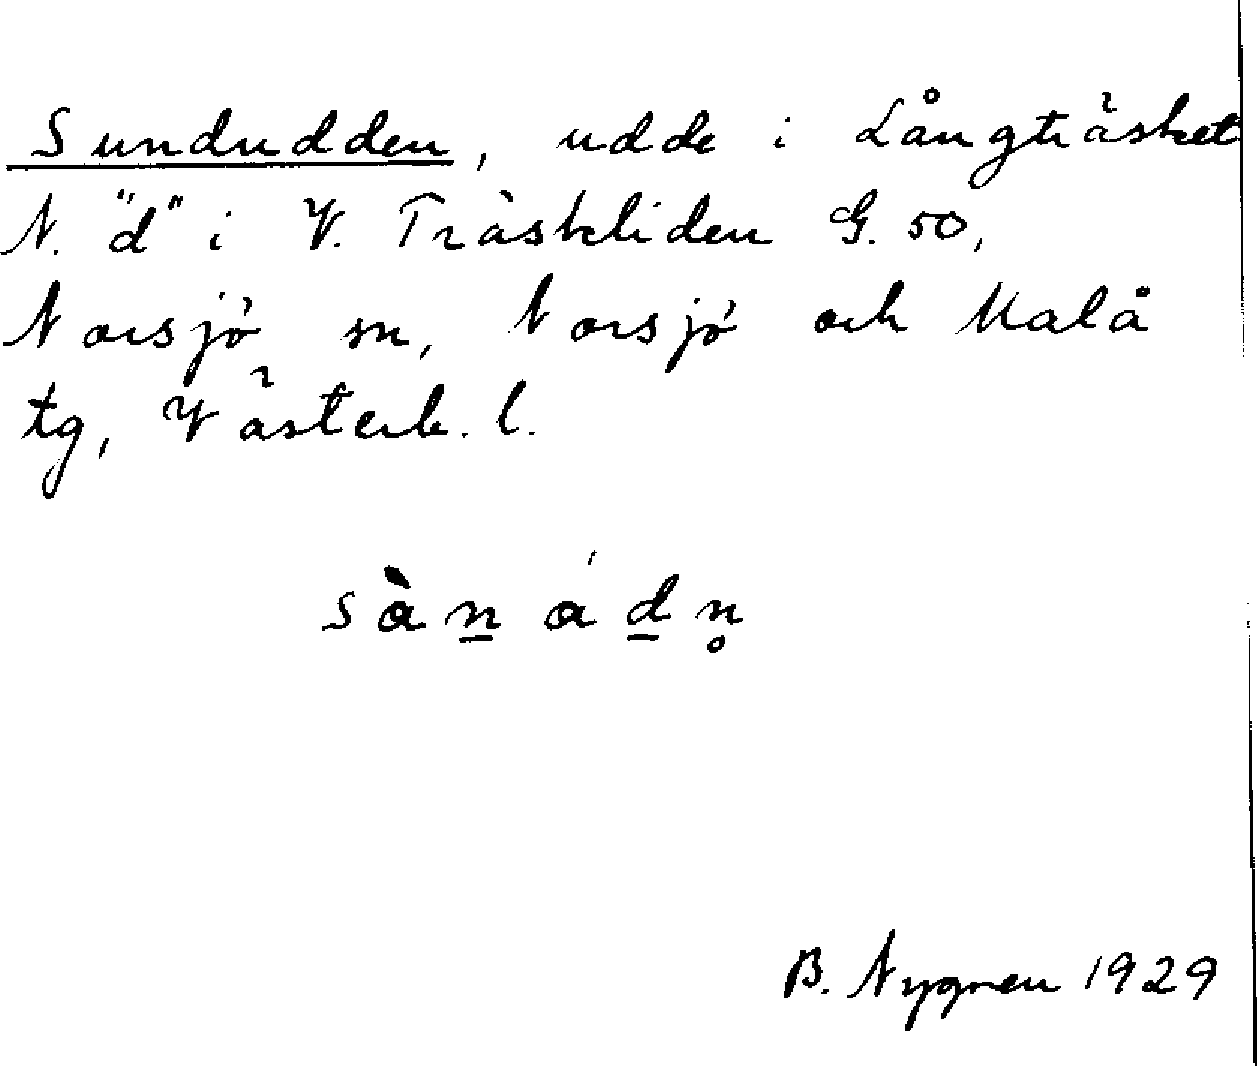 Sundudden, udde i Långträsket
N. "d" i V. Träskliden G. 50,
Norsjö sn, Norsjö och Malå
tg, Västerb. l.
sàn̲ ád̲n̥
B. Nygren 1929